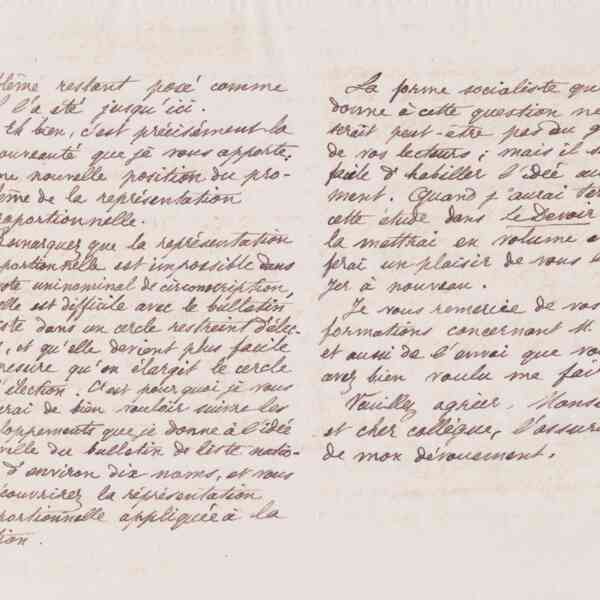 blème restant posé comme
l l'a été jusqu'ici.
Eh bien, c'est précisément la
ouveauté que je vous apporte,
ne nouvelle position du pro-
lème de la représentation
roportionnelle.
Remarquez que la représentation
oportionnelle est impossible dans
vote uninominal de circonscription,
elle est difficile avec le bulletin
liste dans un cercle restreint d'élec-
, et qu'elle devient plus facile
mesure qu'on élargit le cercle
l'élection. C'est pourquoi je vous
erai de bien vouloir suivre les
loppements que je donne à l'idée
velle du bulletin de liste natio-
d'environ dix noms, et vous
écouvrirez la représentation
portionnelle appliquée à la
tion.
La forme socialiste que
donne à cette question ne
serait peut-être pas du g
de vos lecteurs; mais il s
facile d'habiller l'idée au
ment. Quand j'aurai ter
cette étude dans Le Devoir
la mettrai en volume e
ferai un plaisir de vous l
yer à nouveau.
Je vous remercie de vos
formations concernant M.
et aussi de l'envoi que vo
avez bien voulu me fai
Veuillez agréer, Monsi
et cher collègue, l'assura
de mon dévouement.